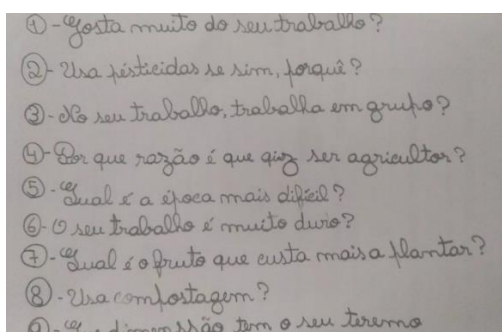 ① - Gosta muito do seu trabalho?
② - Usa pésticidas se sim, porquê?
③ - No seu trabalho, trabalha em grupo?
④ - Por que razão é que quiz ser agricultor?
⑤ - Qual é a época mais difícil?
⑥ - O seu trabalho é muito duro?
⑦ - Qual é o fruto que custa mais a plantar?
⑧ - Usa compostagem?
⑨ - Que dimenssão tem o seu tereno